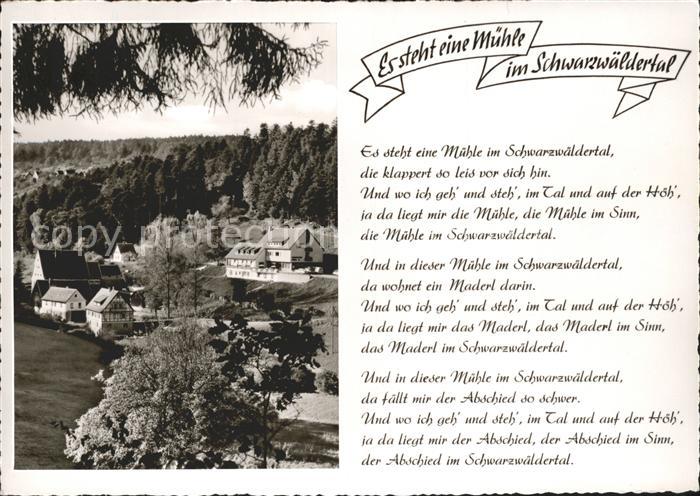 Es steht eine Mühle
im Schwarzwäldertal
Es steht eine Mühle im Schwarzwäldertal,
die klappert so leis vor sich hin.
Und wo ich geh' und steh', im Tal und auf der Höh',
ja da liegt mir die Mühle, die Mühle im Sinn,
die Mühle im Schwarzwäldertal.
Und in dieser Mühle im Schwarzwäldertal,
da wohnet ein Maderl darin.
Und wo ich geh' und steh', im Tal und auf der Höh',
ja da liegt mir das Maderl, das Maderl im Sinn,
das Maderl im Schwarzwäldertal.
Und in dieser Mühle im Schwarzwäldertal,
da fällt mir der Abschied so schwer.
Und wo ich geh' und steh', im Tal und auf der Höh',
ja da liegt mir der Abschied, der Abschied im Sinn,
der Abschied im Schwarzwäldertal.
copyprotected